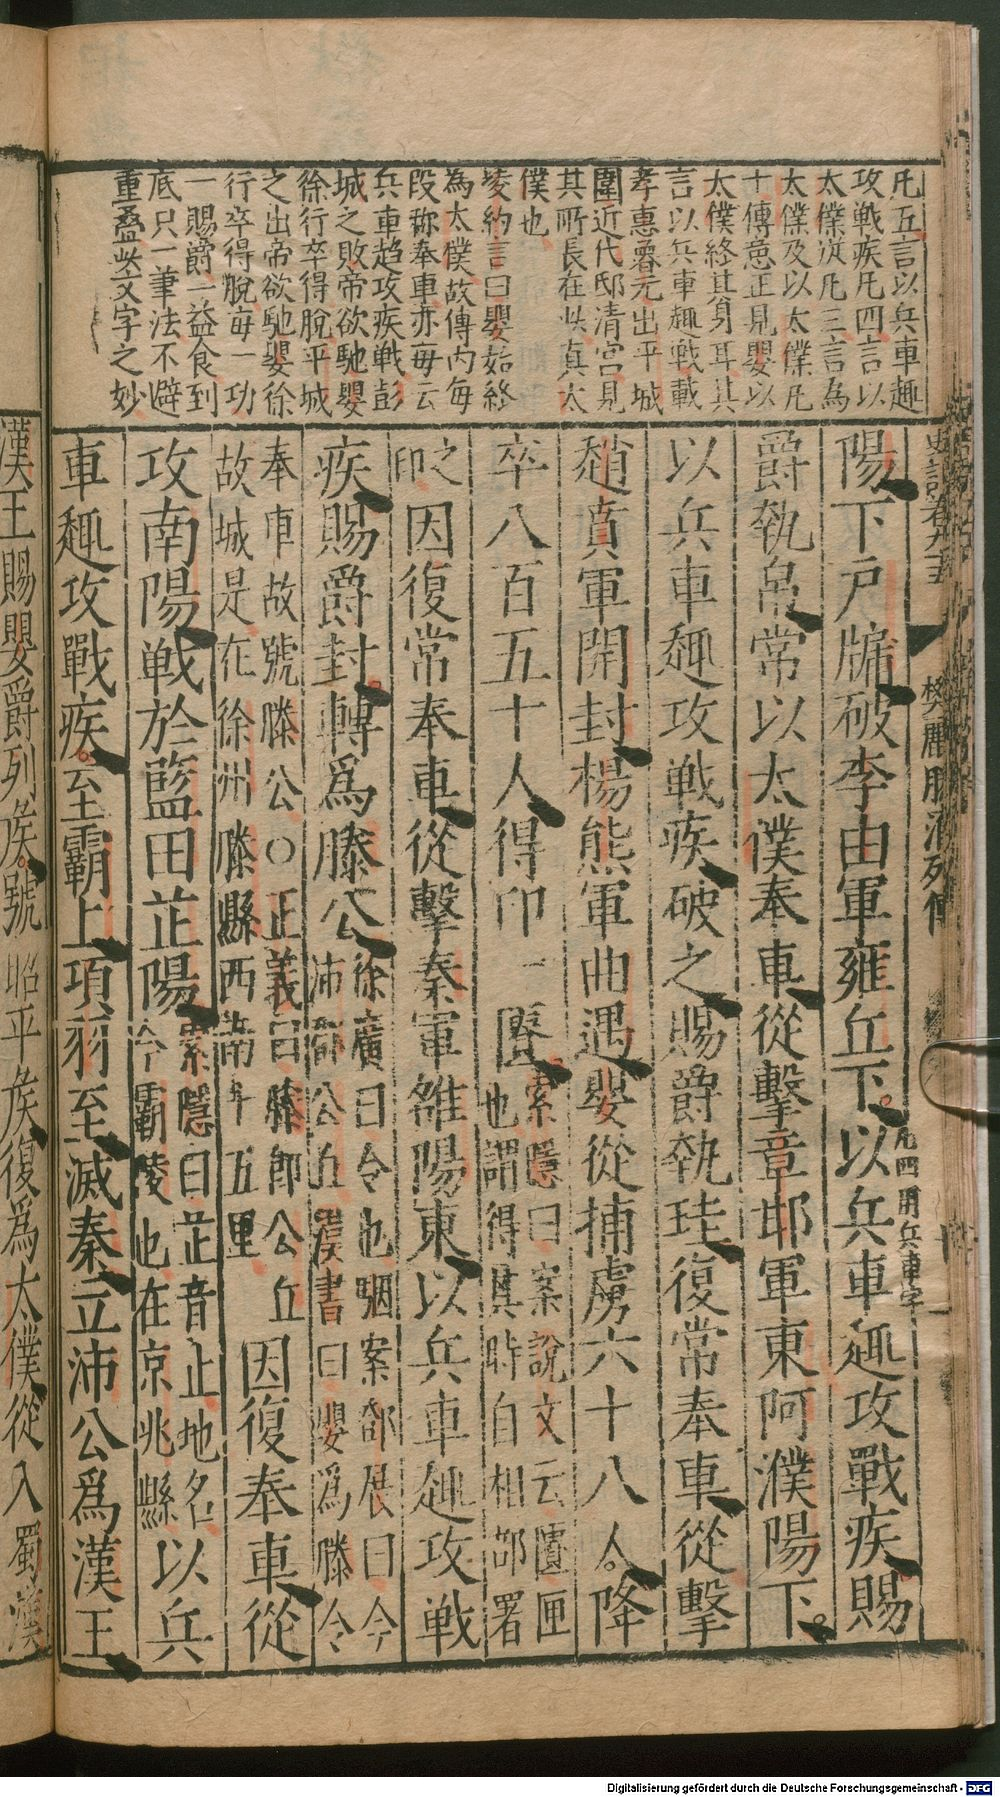 凡五言以兵車趣
攻戰疾凡四言以
太僕從凡三言為
太僕及以太僕凡
十傳意正見嬰以
太僕終其身耳其
言以兵車趣戰載
孝惠魯元出平城
圍近代邸清宮見
其所長在此真太
僕也
凌約言曰嬰始終
為太僕故傳內每
段称奉車亦每云
兵車趨攻疾戰彭
城之敗帝欲馳嬰
徐行卒得脫平城
之出帝欲馳嬰徐
行卒得脫每一功
一賜爵一益食到
底只一筆法不避
重疊此文字之妙
史記卷九十五 樊酈滕灌列傳
陽下戶牖破李由軍雍丘下以兵車趣攻戰疾賜
凡四用兵車字
爵執帛常以太僕奉車從擊章邯軍東阿濮陽下
以兵車趣攻戰疾破之賜爵執珪復常奉車從擊
趙賁軍開封楊熊軍曲遇嬰從捕虜六十八人降
卒八百五十人得印一匱索隱曰案說文云匱匣
也謂得其時自相部署
之
印因復常奉車從擊秦軍雒陽東以兵車趣攻戰
疾賜爵封轉為滕公徐廣曰令也駰案鄧展曰今
沛郡公丘漢書曰嬰為滕令
奉車故號滕公○正義曰滕即公丘
故城是在徐州滕縣西南十五里因復奉車從
攻南陽戰於藍田芷陽索隱曰芷音止地名
今霸陵也在京兆縣以兵
車趣攻戰疾至霸上項羽至滅秦立沛公為漢王
漢王賜嬰爵列侯號昭平侯復為太僕從入蜀漢
Digitalisierung gefördert durch die Deutsche Forschungsgemeinschaft - DFG